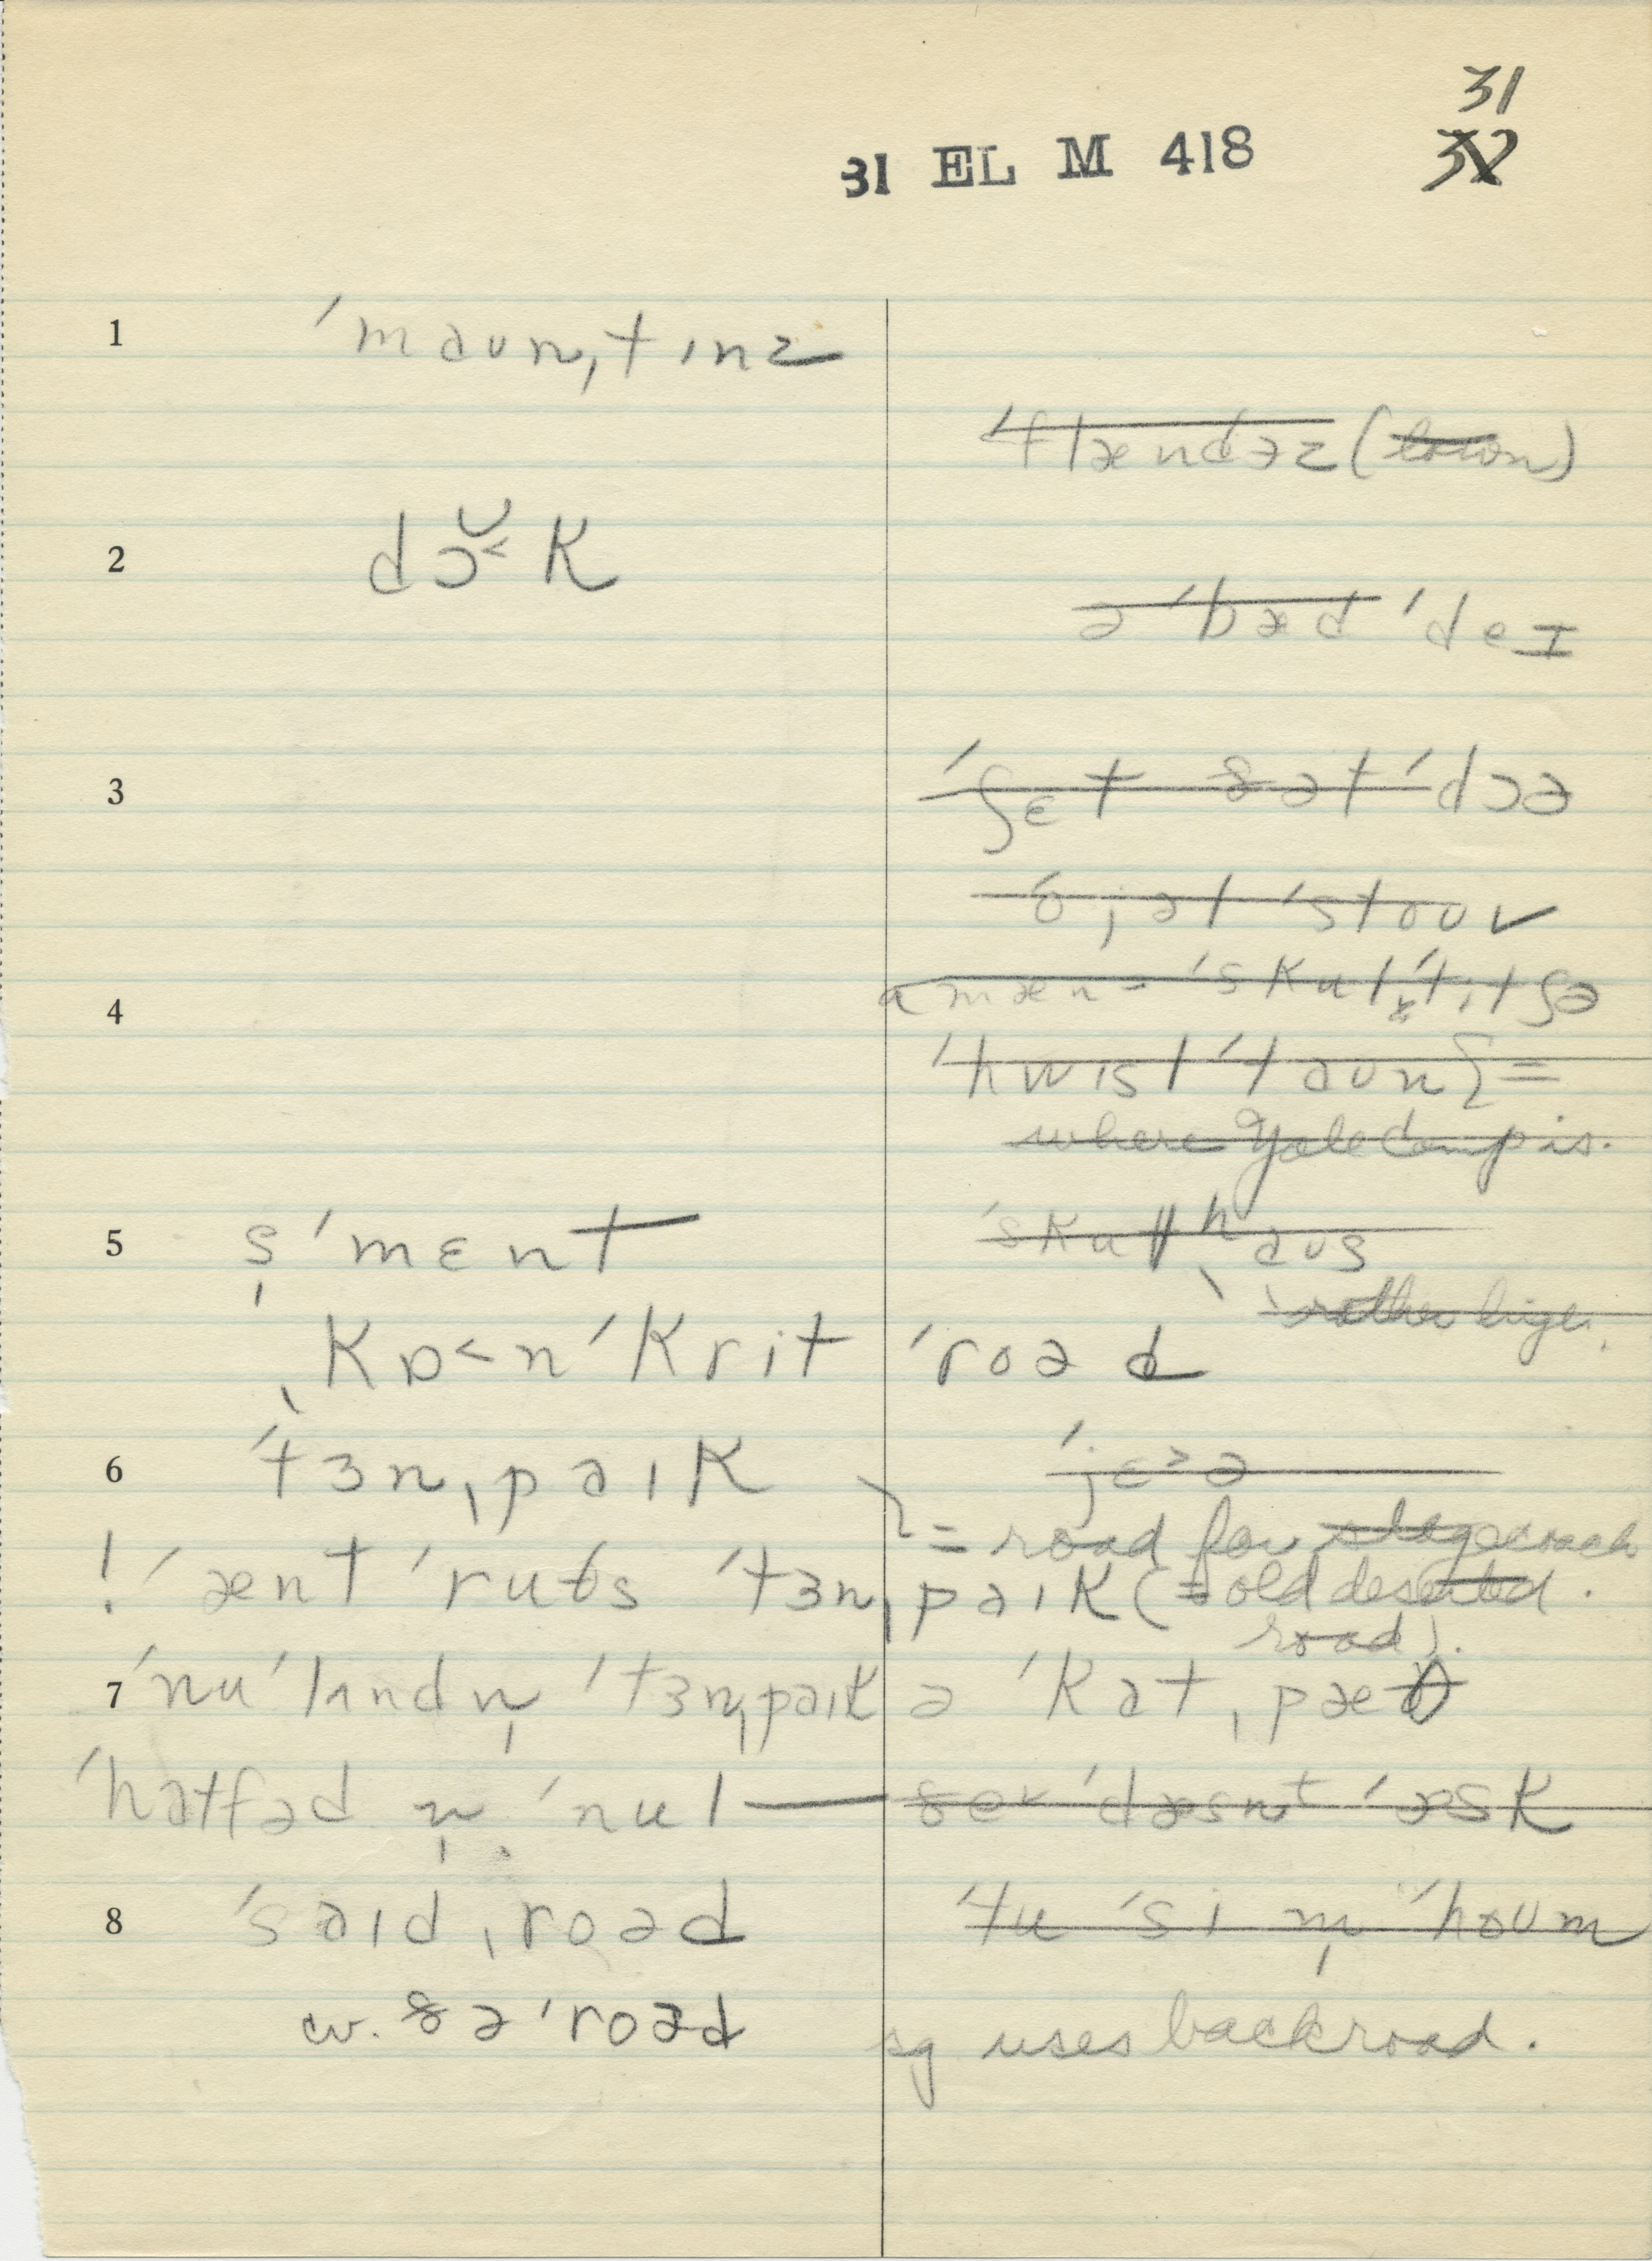 31
32
31 EL M 418
1 ˈmaʊnˌtɪnz
ˈflændəz (town)
2 dɔ̆˂k
ə ˈbæd ˈdeɪ
3 ˈʃɛt ðət ˈdɔə
ˈstoʊv
4 ˈskul ˈtitʃə
ˈhwɪsl ˈtaʊn =
where Yale Camp is.
5 s̩ ˈmɛnt
ˈskulˌhaʊs
rather large.
ˌkɒ˂nˈkrit ˈroəd
6 ˈtɜnˌpaɪk
ˈjɛ˃ə
= road for stagecoach
! ˈænt ˈruθs ˈtɜnˌpaɪk (= old deserted
road).
7 ˈnu ˈlʌndn̩ ˈtɜnˌpaɪk
ə ˈkatˌpæθ
ˈhatfəd n̩ ˈnul—
ˈæsk
8 ˈsaɪdˌroəd
ˈtu ˈsi m̩ ˈhoʊm
w. ðə ˈroəd
sg uses backroad.